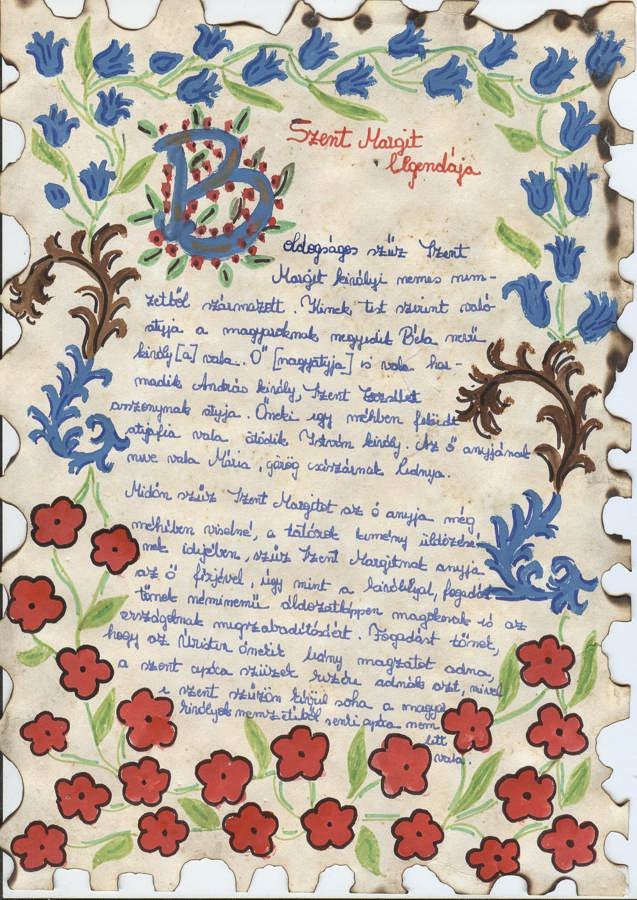 Szent Margit
legendája
Boldogságos szűz Szent
Margit királyi nemes nem-
zetből származott. Kinek test szerint való
atyja a magyaroknak negyedik Béla nevű
király[a] vala. Ő [nagyatyja] is vala har-
madik András király, Szent Erzsébet
asszonynak atyja. Őneki egy méhben feküdt
atyjafia vala ötödik István király. Az ő anyjának
neve vala Mária, görög császárnak leánya.
Midőn szűz Szent Margitot az ő anyja még
méhében viselné, a tatárok kemény üldözésé-
nek idejében, szűz Szent Margitnak anyja
az ő férjével, úgy mint a királlyal, fogadást
tőnek néminemű áldozatképpen magoknak is az
országoknak megszabadításáért. Fogadást tőnek,
hogy az Úristen őnekik leány magzatot adna,
a szent apáca szüzek közé adnák azt, mivel
e szent szűzön kívül soha a magyar
királyok nemzetiből senki apáca nem
lett
vala.